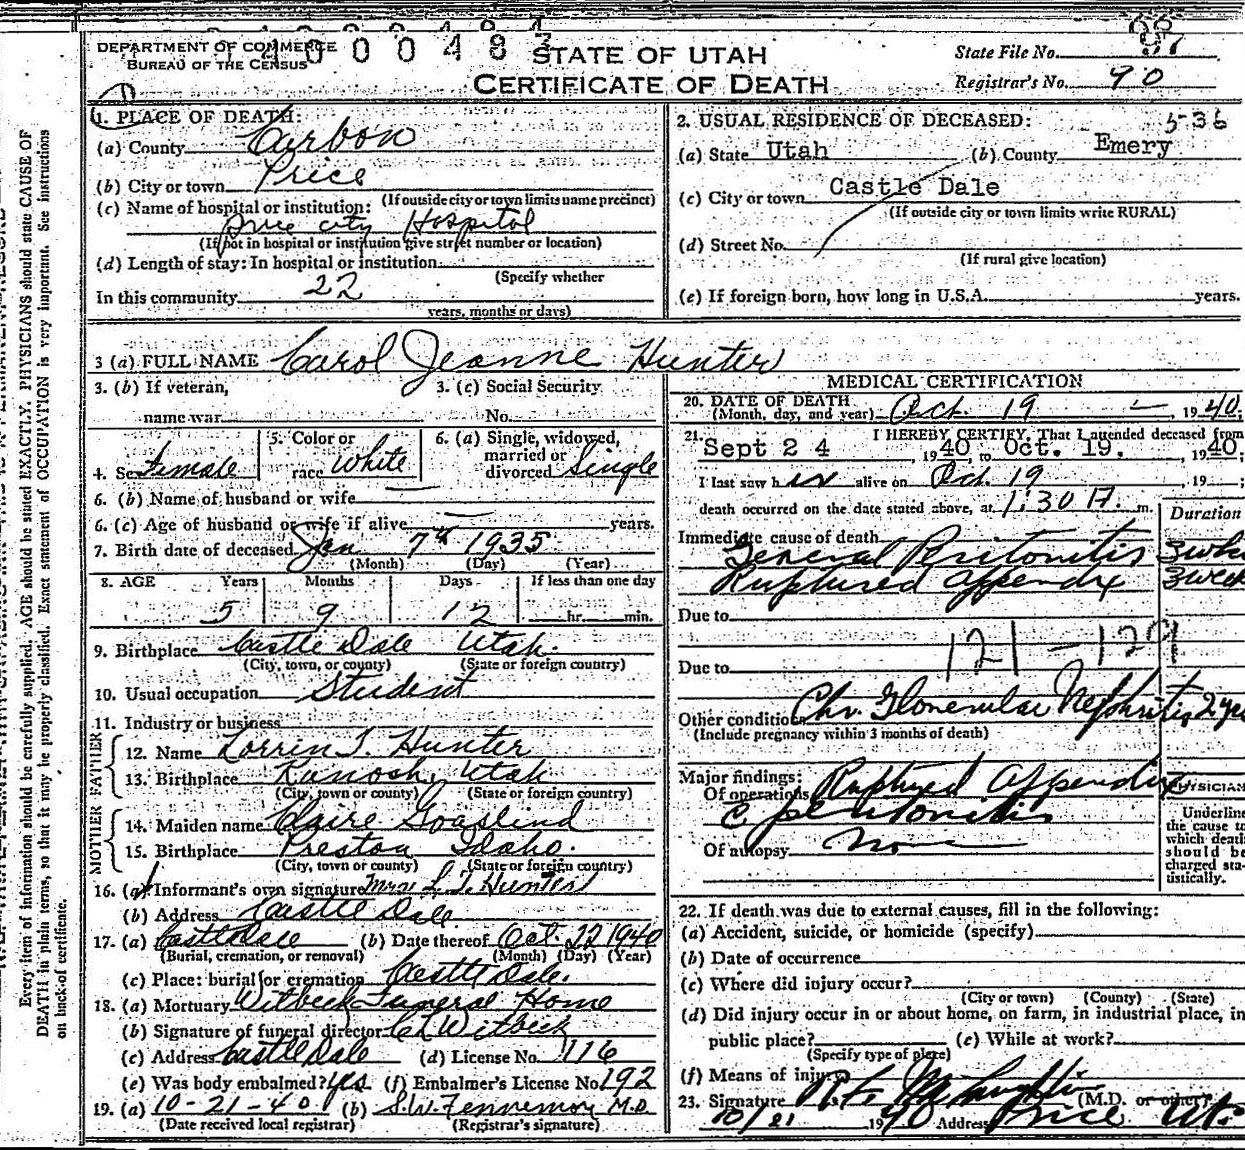 DEPARTMENT OF COMMERCE
BUREAU OF THE CENSUS
STATE OF UTAH
CERTIFICATE OF DEATH
State File No.
Registrar's No. 90
1. PLACE OF DEATH:
(a) County Carbon
(b) City or town Price
(If outside city or town limits name precinct)
(c) Name of hospital or institution:
Price City Hospital
(If not in hospital or institution give street number or location)
(d) Length of stay: In hospital or institution
(Specify whether
In this community 22
years, months or days)
2. USUAL RESIDENCE OF DECEASED: 5-36
(a) State Utah (b) County Emery
(c) City or town Castle Dale
(If outside city or town limits write RURAL)
(d) Street No.
(If rural give location)
(e) If foreign born, how long in U.S.A. years.
3 (a) FULL NAME Carol Jeanne Hunter
3. (b) If veteran,
name war
3. (c) Social Security
No.
4. Sex Female
5. Color or
race White
6. (a) Single, widowed,
married or
divorced Single
6. (b) Name of husband or wife
6. (c) Age of husband or wife if alive years.
7. Birth date of deceased Jan 7th 1935
(Month) (Day) (Year)
8. AGE Years Months Days If less than one day
5 9 12 hr. min.
9. Birthplace Castle Dale Utah.
(City, town, or county) (State or foreign country)
10. Usual occupation Student
11. Industry or business
FATHER
12. Name Lorrin T. Hunter
13. Birthplace Kanosh, Utah
(City, town or county) (State or foreign country)
MOTHER
14. Maiden name Claire Goaslind
15. Birthplace Preston Idaho.
(City, town or county) (State or foreign country)
16. (a) Informant's own signature Mrs L. T. Hunter
(b) Address Castle Dale
17. (a) Castle Dale (b) Date thereof Oct. 22 1940
(Burial, cremation, or removal) (Month) (Day) (Year)
(c) Place: burial or cremation Castle Dale.
18. (a) Mortuary Witbeck Funeral Home
(b) Signature of funeral director C L Witbeck
(c) Address Castle Dale (d) License No. 116
(e) Was body embalmed? Yes (f) Embalmer's License No. 192
19. (a) 10-21-40 (b) S.W. Fennemor M.D.
(Date received local registrar) (Registrar's signature)
MEDICAL CERTIFICATION
20. DATE OF DEATH
(Month, day, and year) Oct. 19 — , 1940;
21. I HEREBY CERTIFY, That I attended deceased from
Sept 24 , 1940, to Oct. 19. , 1940;
I last saw her alive on Oct. 19 , 19 ;
death occurred on the date stated above, at 1:30 m.
Duration
Immediate cause of death
General Peritonitis
Ruptured appendix 3 week
Due to
121 - 129
Due to
Other condition Chr. Glomerular Nephritis 2 ye
(Include pregnancy within 3 months of death)
Major findings:
Of operations Ruptured Appendix
c peritonitis
Of autopsy None
PHYSICIAN
Underline
the cause to
which death
should be
charged sta-
tistically.
22. If death was due to external causes, fill in the following:
(a) Accident, suicide, or homicide (specify)
(b) Date of occurrence
(c) Where did injury occur?
(City or town) (County) (State)
(d) Did injury occur in or about home, on farm, in industrial place, in
public place? (e) While at work?
(Specify type of place)
(f) Means of injury
23. Signature (M.D. or other)
10/21 1940 Address Price Ut.
Every item of information should be carefully supplied. AGE should be stated EXACTLY. PHYSICIANS should state CAUSE OF
DEATH in plain terms, so that it may be properly classified. Exact statement of OCCUPATION is very important. See instructions
on back of certificate.